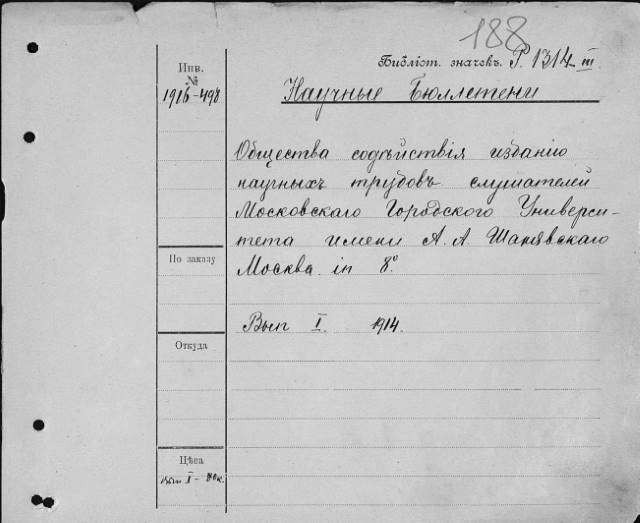 188
Библіот. значекъ. Р. 1314 III
Инв.
№
1916-498
Научные Бюллетени
Общества содѣйствія изданію
научныхъ трудовъ слушателей
Московскаго Городского Универси-
тета имени А. А. Шанявскаго
По заказу
Москва. in 8º.
Вып I. 1914.
Откуда
Цѣна
I - к.